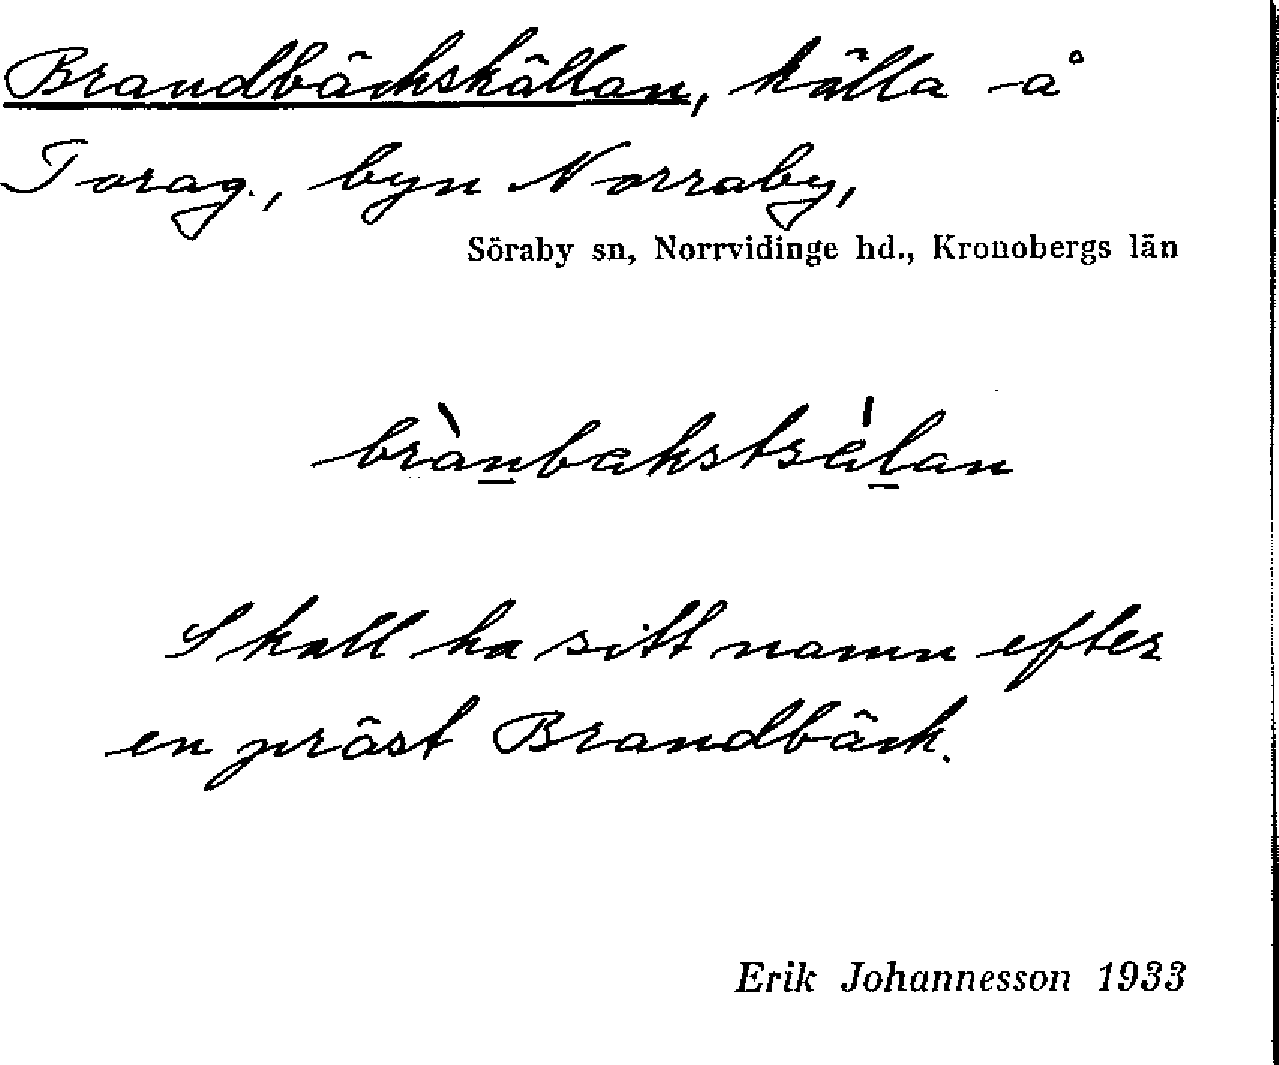 Brandbäckskällan, källa å
Torag., byn Norraby,
Söraby sn, Norrvidinge hd., Kronobergs län
brànbakstsálan
Skall ha sitt namn efter
en präst Brandbäck.
Erik Johannesson 1933